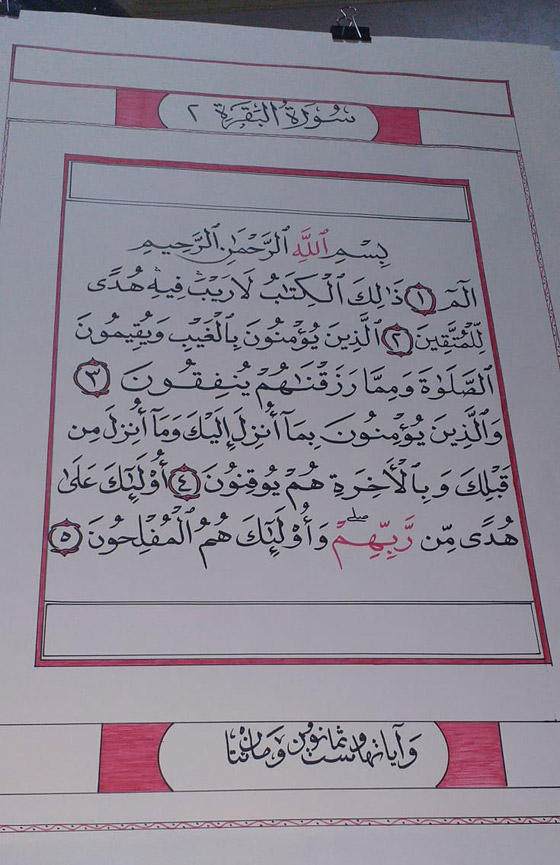 سُورَةُ البَقَرَةِ ٢
بِسْمِ ٱللَّهِ ٱلرَّحْمَٰنِ ٱلرَّحِيمِ
الٓمٓ ١ ذَٰلِكَ ٱلْكِتَٰبُ لَا رَيْبَ ۛ فِيهِ ۛ هُدًى
لِّلْمُتَّقِينَ ٢ ٱلَّذِينَ يُؤْمِنُونَ بِٱلْغَيْبِ وَيُقِيمُونَ
ٱلصَّلَوٰةَ وَمِمَّا رَزَقْنَٰهُمْ يُنفِقُونَ ٣
وَٱلَّذِينَ يُؤْمِنُونَ بِمَآ أُنزِلَ إِلَيْكَ وَمَآ أُنزِلَ مِن
قَبْلِكَ وَبِٱلْأَخِرَةِ هُمْ يُوقِنُونَ ٤ أُوْلَٰٓئِكَ عَلَىٰ
هُدًى مِّن رَّبِّهِمْ ۖ وَأُوْلَٰٓئِكَ هُمُ ٱلْمُفْلِحُونَ ٥
وَآيَاتُهَا سِتٌّ وَثَمَانُونَ وَمَائَتَا